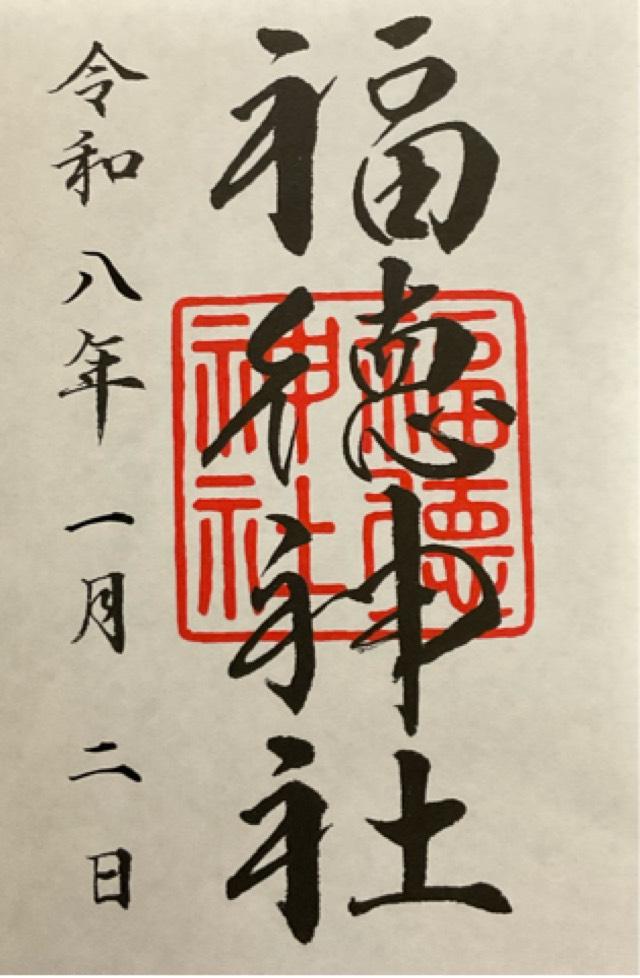 福徳神社
福徳神社
令和八年一月二日